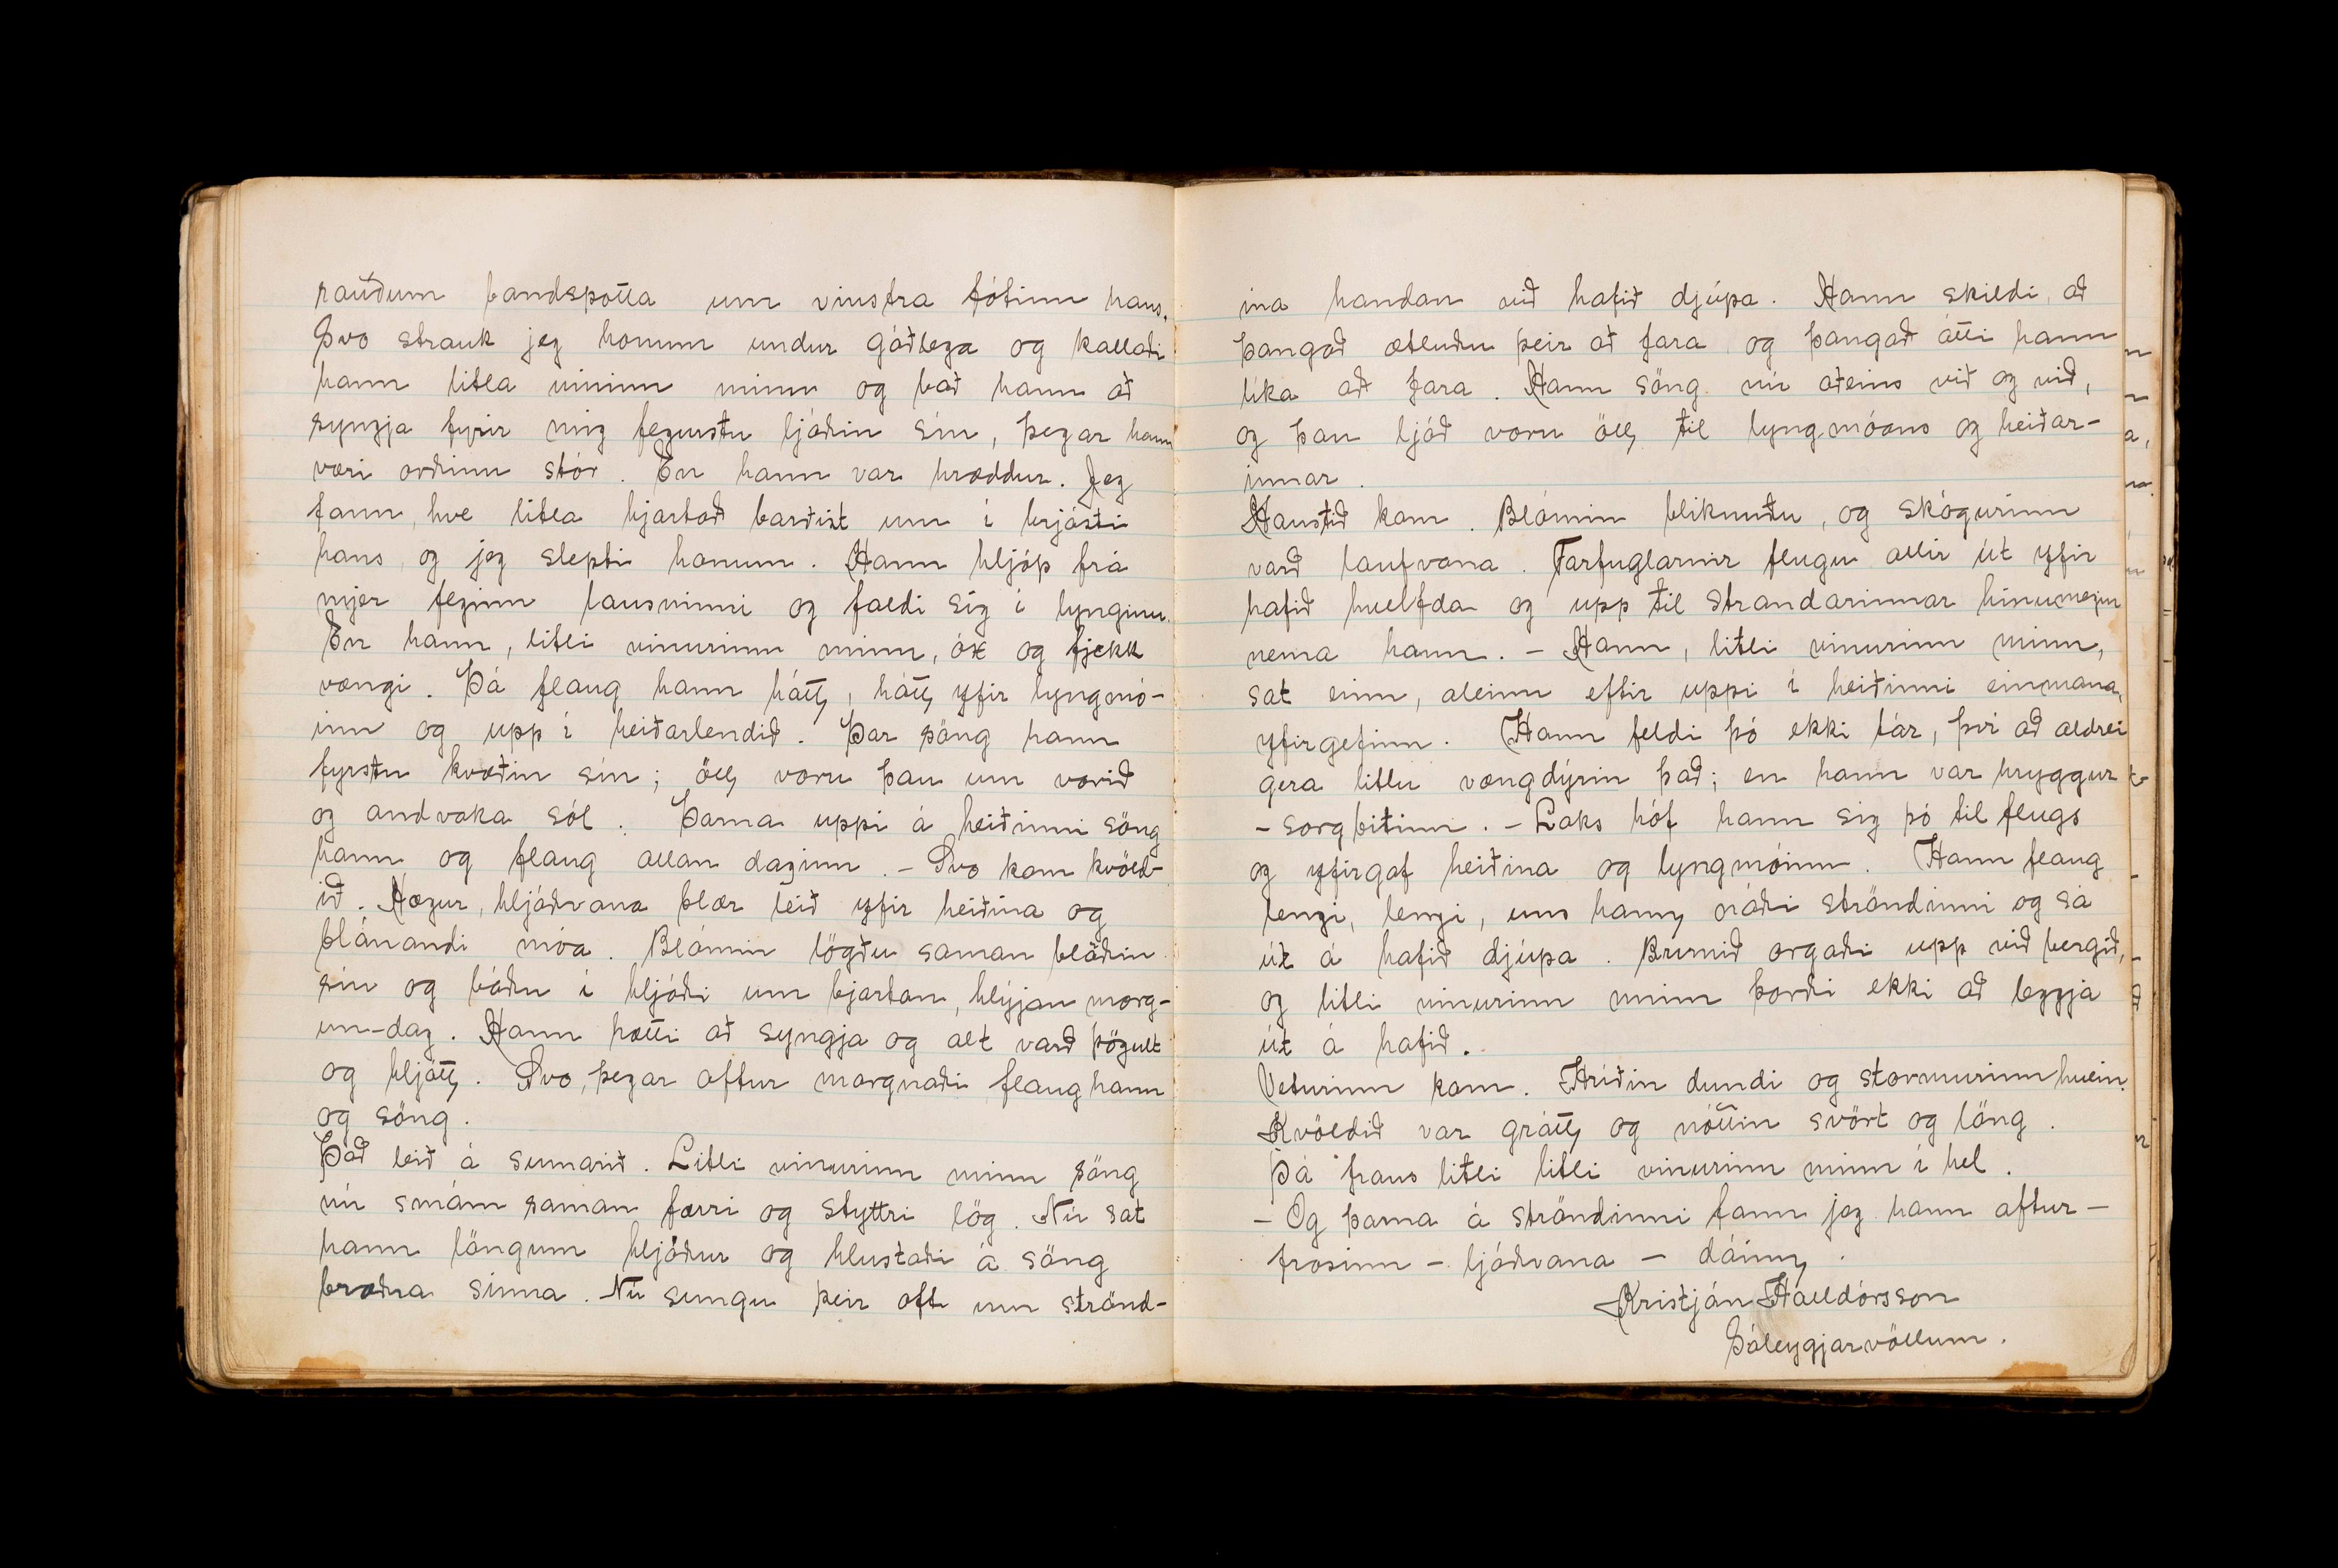 rauðum bandspotta um vinstra fótinn hans.
Svo strauk jeg honum undur góðlega og kallaði
hann litla vininn minn og bað hann að
syngja fyrir mig fegurstu ljóðin sín, þegar hann
væri orðinn stór. En hann var hræddur. Jeg
fann, hve litla hjartað barðist um í brjósti
hans, og jeg slepti honum. Hann hljóp frá
mjer feginn lausninni og faldi sig í lynginu.
En hann, litli vinurinn minn, óx og fjekk
vængi. Þá flaug hann hátt, hátt yfir lyngmó-
inn og upp í heiðarlendið. Þar söng hann
fyrstu kvæðin sín; öll voru þau um vorið
og andvaka sól. Þarna uppi á heiðinni söng
hann og flaug allan daginn. - Svo kom kvöld-
ið. Hægur, hljóðvana blær leið yfir heiðina og
blánandi móa. Blómin lögðu saman blöðin
sín og báðu í hljóði um bjartan, hlýjan morg-
un-dag. Hann hætti að syngja og alt varð þögult
og hljótt. Svo, þegar aftur morgnaði flaug hann
og söng.
Það leið á sumarið. Litli vinurinn minn söng
nú smám saman færri og styttri lög. Nú sat
hann löngum hljóður og hlustaði á söng
bræðra sinna. Nú sungu þeir oft um strönd-
ina handan við hafið djúpa. Hann skildi, að
þangað ætluðu þeir að fara og þangað átti hann
líka að fara. Hann söng nú aðeins við og við,
og þau ljóð voru öll til lyngmóans og heiðar-
innar.
Haustið kom. Blómin bliknuðu, og skógurinn
varð laufvana. Farfuglarnir flugu allir út yfir
hafið hvelfda og upp til strandarinnar hinumegin
nema hann. - Hann, litli vinurinn minn,
sat einn, aleinn eftir uppi í heiðinni einmana,
yfirgefinn. Hann feldi þó ekki tár, því að aldrei
gera litlu vængdýrin það; en hann var hryggur
- sorgbitinn. - Loks hóf hann sig þó til flugs
og yfirgaf heiðina og lyngmóinn. Hann flaug
lengi, lengi, uns hann náði ströndinni og sá
út á hafið djúpa. Brimið orgaði upp við bergið,
og litli vinurinn minn þorði ekki að leggja
út á hafið.
Veturinn kom. Hríðin dundi og stormurinn hvein.
Kvöldið var grátt og nóttin svört og löng.
Þá fraus litli litli vinurinn minn í hel.
- Og þarna á ströndinni fann jeg hann aftur -
frosinn - ljóðvana - dáinn.
Kristján Halldórsson
Sóleygjarvöllum.